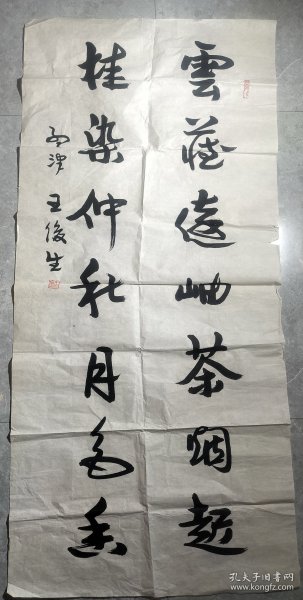 雲藏遠岫茶烟起
桂染仲秋月色香
王俊生
孔夫子旧书网
kongfz.com